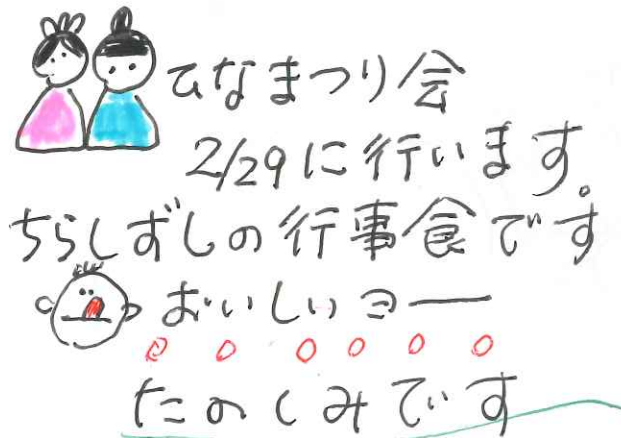 ひなまつり会
2/29に行います。
ちらしずしの行事食です
おいしいヨー
たのしみです